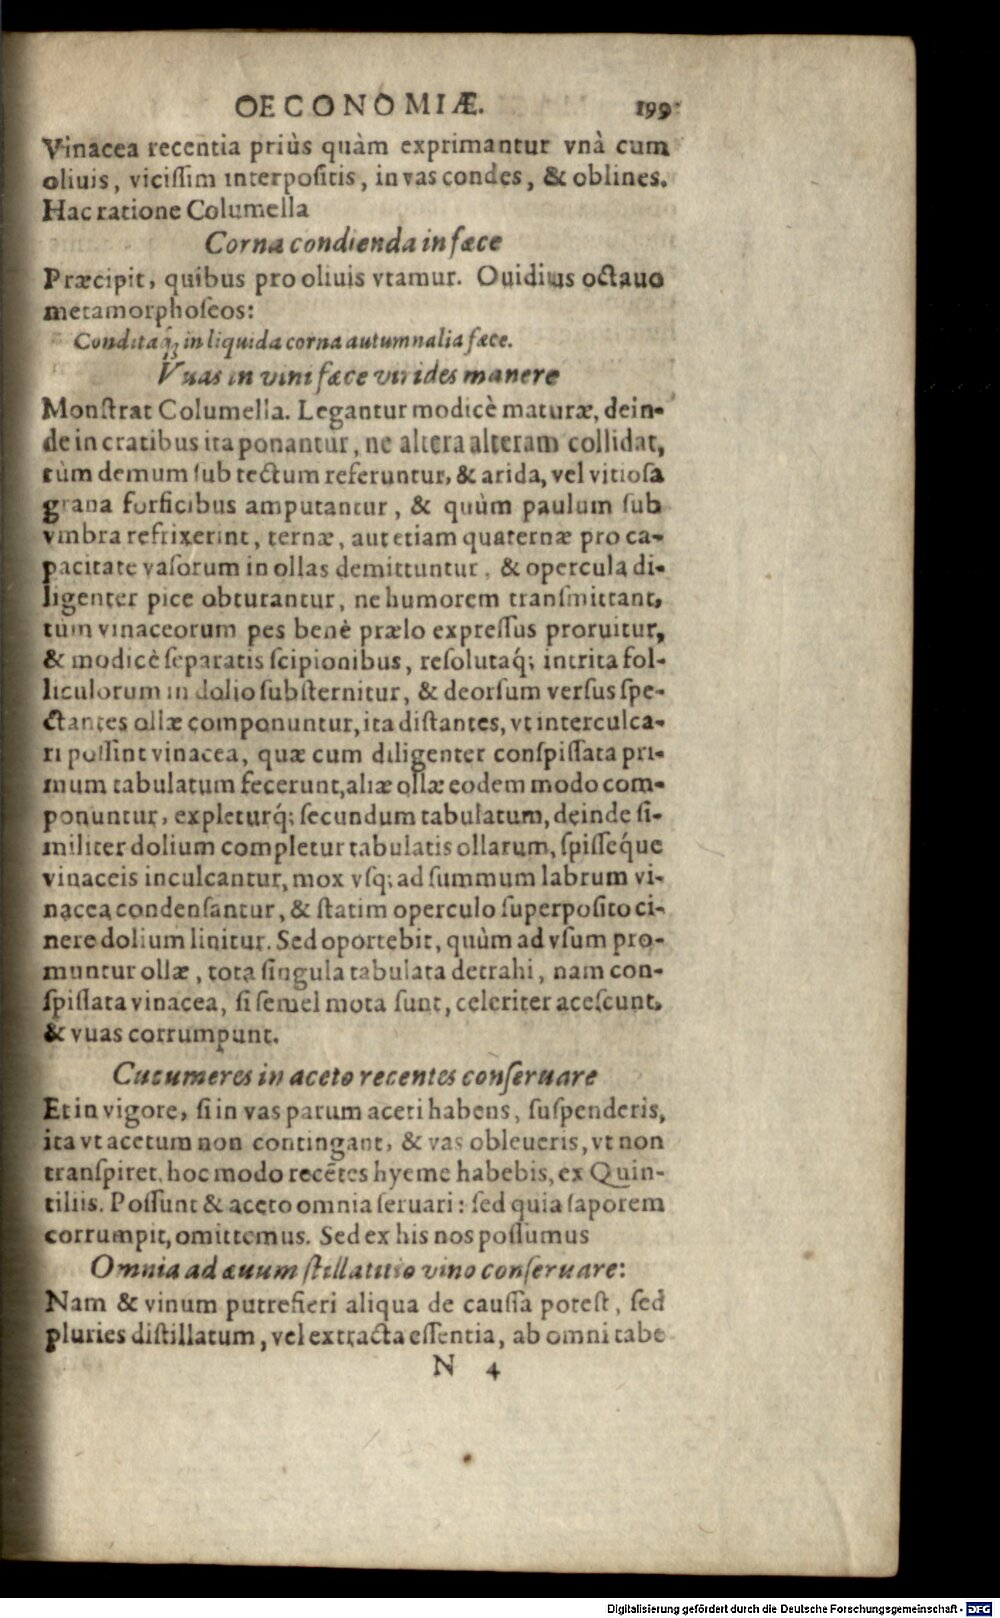 OECONOMIÆ. 199
Vinacea recentia priùs quàm exprimantur vnà cum
oliuis, vicissim interpositis, in vas condes, & oblines.
Hac ratione Columella
Corna condienda in fæce
Præcipit, quibus pro oliuis vtamur. Ouidius octauo
metamorphoseos:
Conditaq́ꝫ in liquida corna autumnalia fæce.
Vuas in vini fæce virides manere
Monstrat Columella. Legantur modicè maturæ, dein-
de in cratibus ita ponantur, ne altera alteram collidat,
tùm demum sub tectum referuntur, & arida, vel vitiosa
grana forficibus amputantur, & quùm paulum sub
vmbra refrixerint, ternæ, aut etiam quaternæ pro ca-
pacitate vasorum in ollas demittuntur, & opercula di-
ligenter pice obturantur, ne humorem transmittant,
tùm vinaceorum pes benè prælo expressus proruitur,
& modicè separatis scipionibus, resolutaq́; intrita fol-
liculorum in dolio substernitur, & deorsum versus spe-
ctantes ollæ componuntur, ita distantes, vt interculca-
ri possint vinacea, quæ cum diligenter conspissata pri-
mum tabulatum fecerunt, aliæ ollæ eodem modo com-
ponuntur, expleturq́; secundum tabulatum, deinde si-
militer dolium completur tabulatis ollarum, spisséque
vinaceis inculcantur, mox vsq; ad summum labrum vi-
nacea condensantur, & statim operculo superposito ci-
nere dolium linitur. Sed oportebit, quùm ad vsum pro-
muntur ollæ, tota singula tabulata detrahi, nam con-
spissata vinacea, si semel mota sunt, celeriter acescunt,
& vuas corrumpunt.
Cucumeres in aceto recentes conseruare
Et in vigore, si in vas parum aceti habens, suspenderis,
ita vt acetum non contingant, & vas obleueris, vt non
transpiret, hoc modo recẽtes hyeme habebis, ex Quin-
tiliis. Possunt & aceto omnia seruari: sed quia saporem
corrumpit, omittemus. Sed ex his nos possumus
Omnia ad æuum stillatitio vino conseruare:
Nam & vinum putrefieri aliqua de caussa potest, sed
pluries distillatum, vel extracta essentia, ab omni tabe
N 4
Digitalisierung gefördert durch die Deutsche Forschungsgemeinschaft - DFG